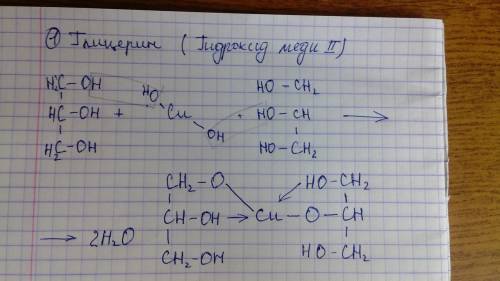 ① Глицерин ( Гидроксид меди II)
H₂C – OH HO – CH₂
HO
HC – OH + Cu + HO – CH →
OH
H₂C – OH HO – CH₂
CH₂ – O HO – CH₂
CH – OH → Cu – O – CH
→ 2H₂O
CH₂ – OH HO – CH₂